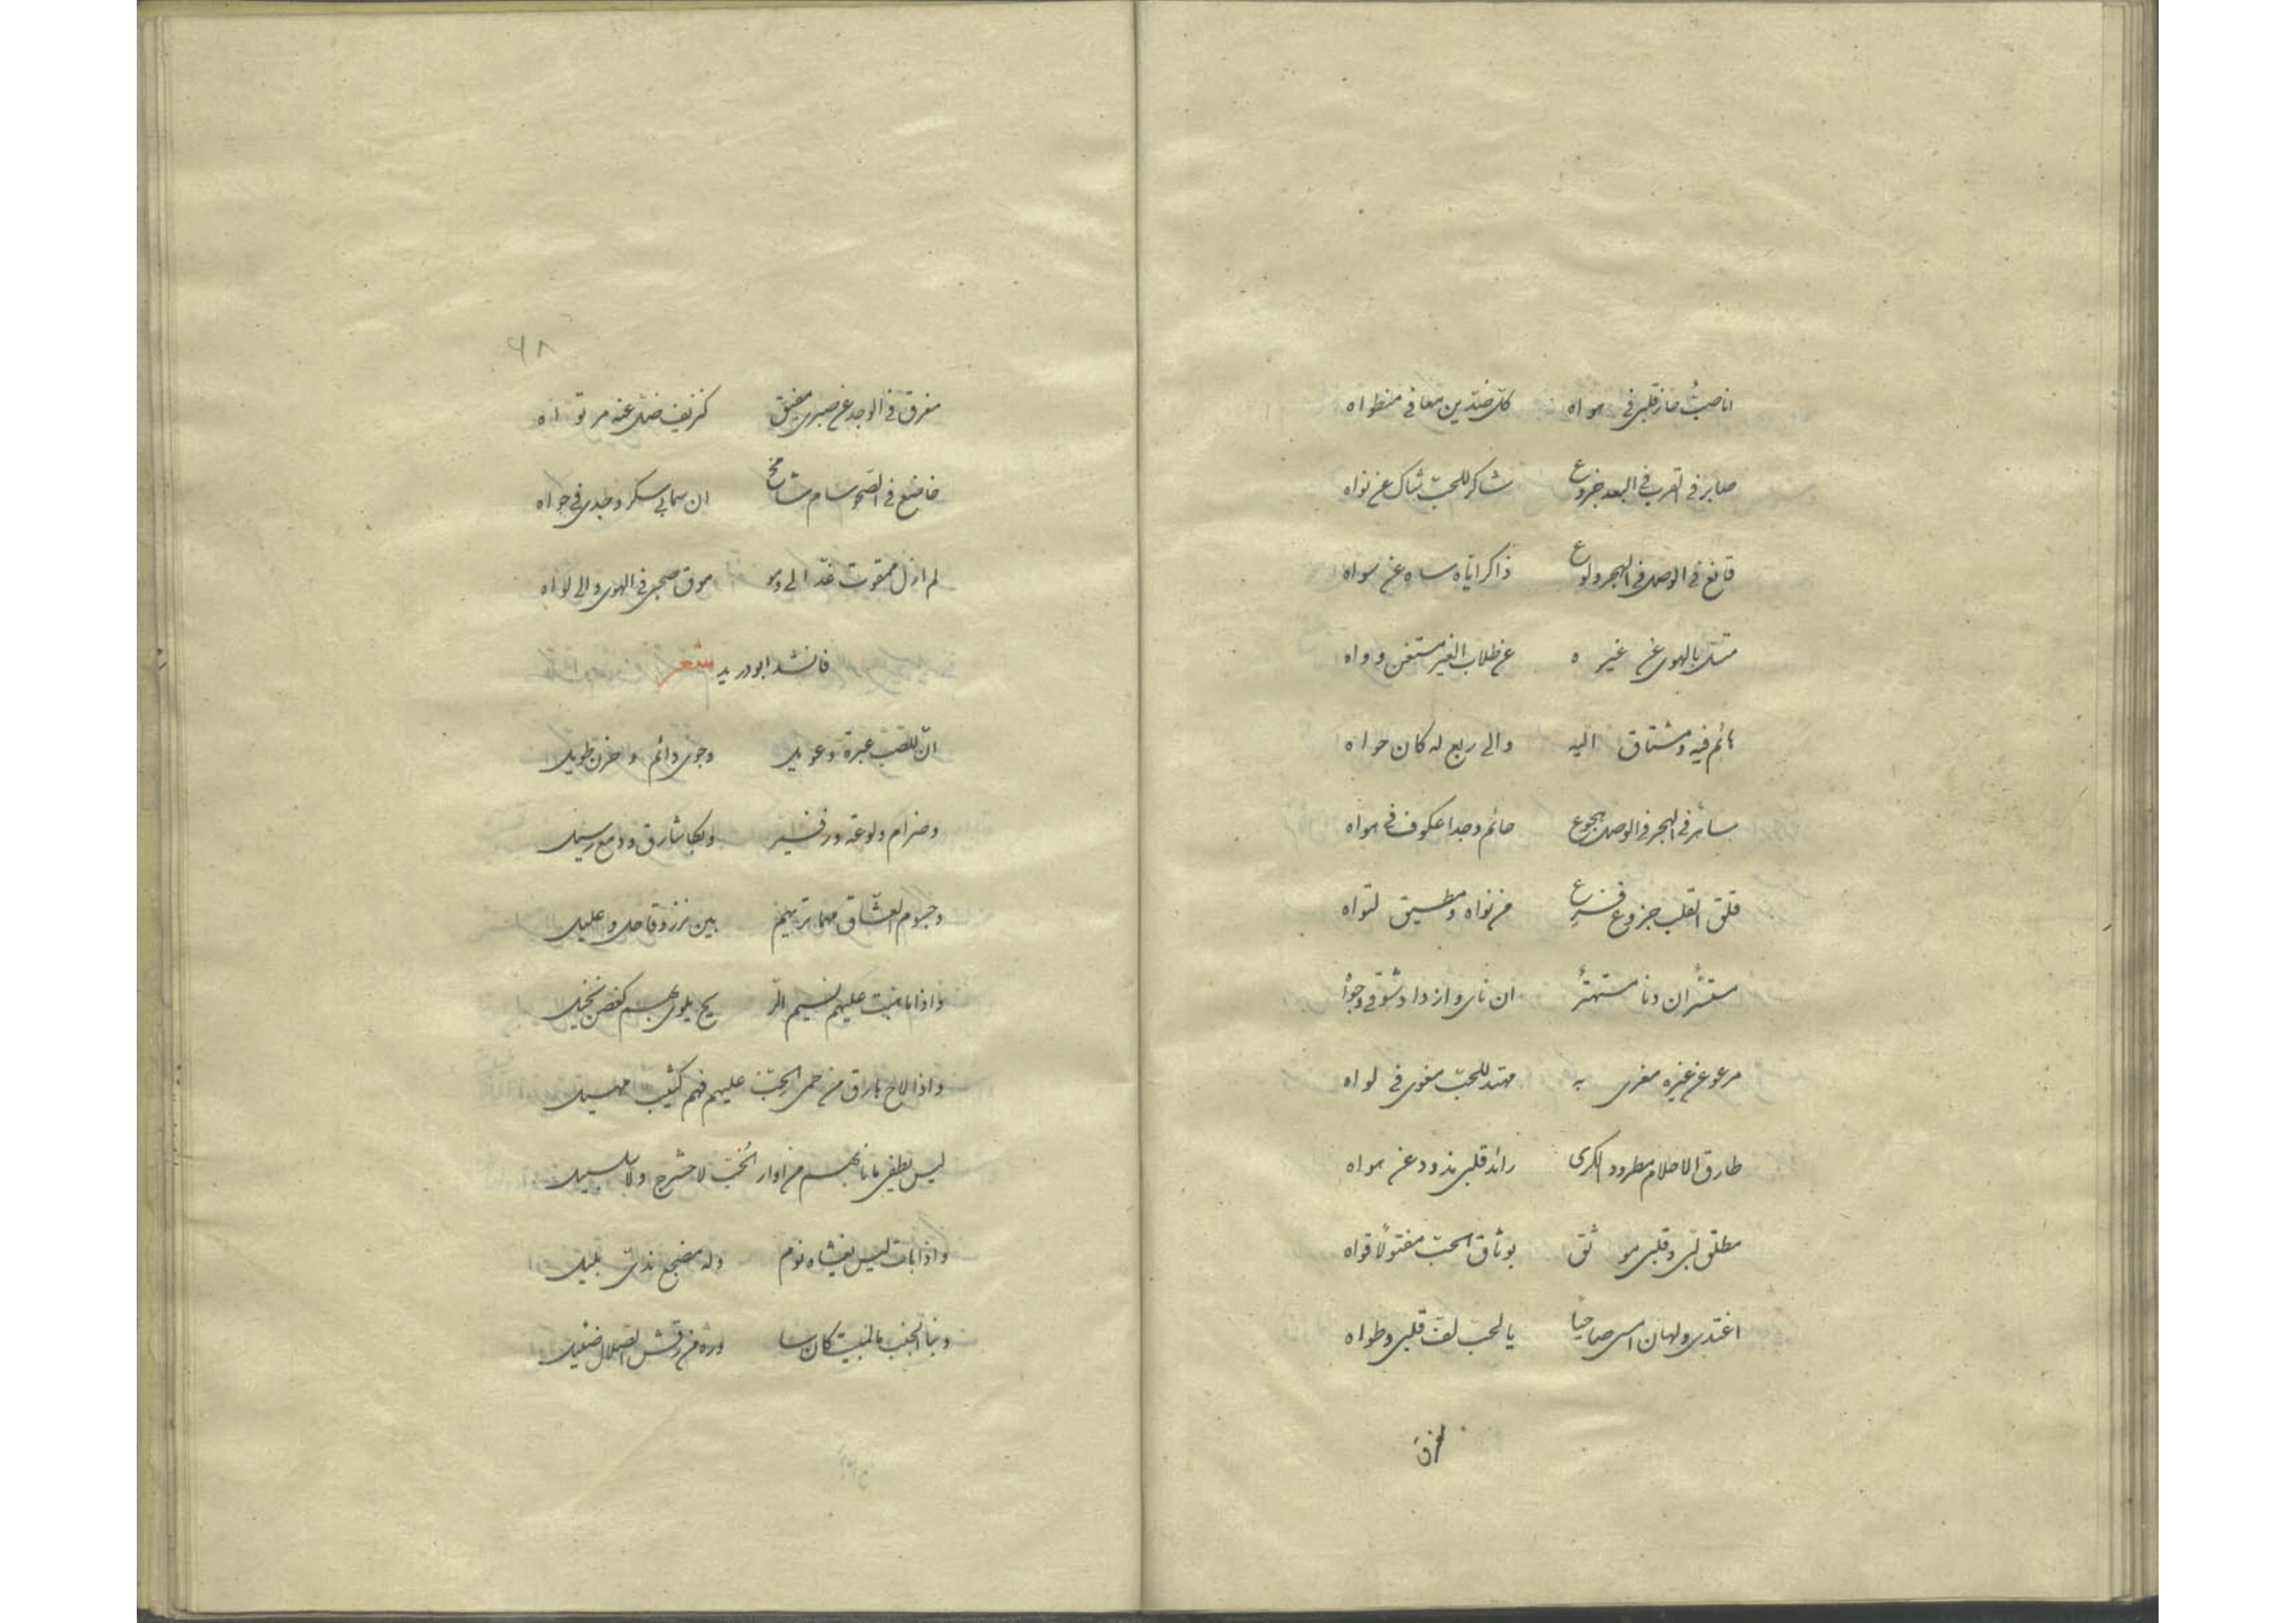 انا صبٌّ حاز قلبی فی هواه کل ضدّین معا فی منطواه
صابر فی القرب فی البعد جزوع شاکر للحبّ شاک عن نواه
قانع فی الوصل فی الهجر ولوع ذاکر ایّاه ساهٍ عن سواه
بالهوی عن غیره عن طلاب الغیر مستغن وواه
هائم فیه ومشتاق الیه والی ربع له کان حواه
ساهر فی الهجر فی الوصل هجوع حائم وجدا عکوف فی هواه
قلق القلب جزوع فزع من نواه ومطیق لتواه
ان دنا مستهترٌ ان نای وازداد شوقی وجواه
مرعو عن غیره مغری به مهتد للحبّ مغوی فی لواه
طارق الاحلام مطرود الکری رائد قلبی یذود عن هواه
مطلق لبّی وقلبی موثق بوثاق الحبّ مفتولًا قواه
اغتدی ولهان امسی صاحیًا بالحب لفّ قلبی وطواه
مغرق
۶۸
مغرق فی الوجد عن صبری مفیق کنزیف ضلّ عنه مرتواه
خاضع فی الصحو سام شامخ ان سمابی سکر وجدی فی جواه
لم ازل ممقوت عذّالی ومو موق صحبی فی الهوی والی لواه
فانشد ابو درید شعر
انّ للصّب عبرة وعویل وجوی دائم وحزن طویل
وضرام ولوعة وزفیر وبکا شارق ودمع یسیل
وجسوم العشّاق مهما تریهم بین نزر وقاحل وعلیل
واذا ما هبّت علیهم نسیم الر یح یلوی بهم کغصن نخیل
واذا لاح بارق من حمی الحبّ علیهم فهم کثیب مهیل
لیس یطفی ما نابهم من اوار الحّب لا حشرج ولا سلسبیل
واذا بات لیس یغشاه نوم وله مضجع ندیّ بلیل
ونبا الجنب بالمبیت کان سا وره من رقش الصلال ضئیل